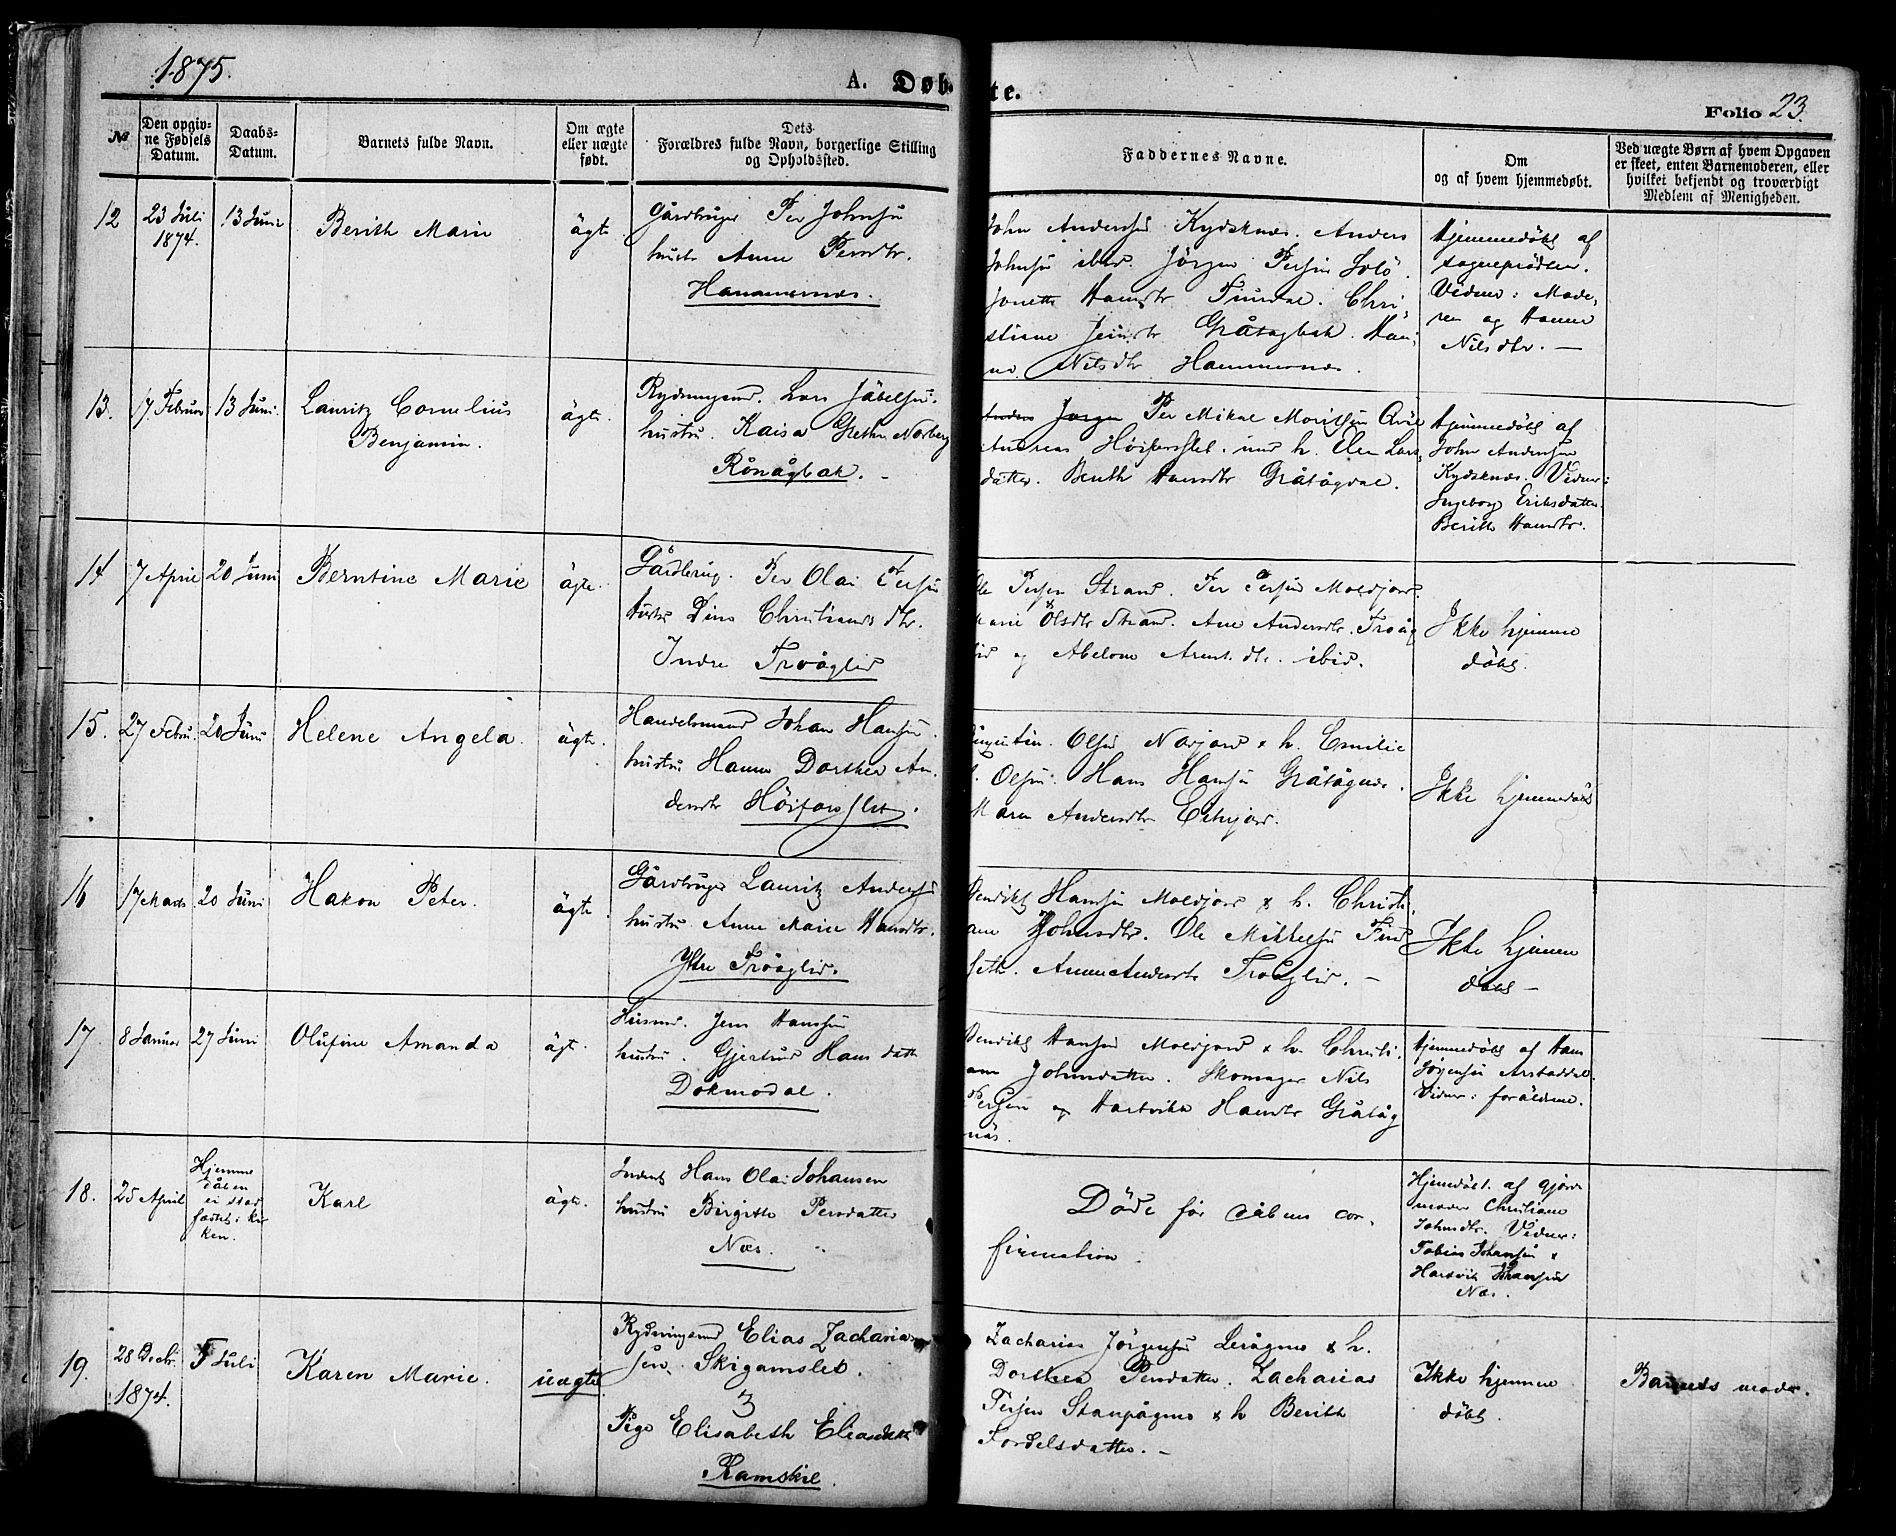 1875.
A. Døbte.
Folio 23.
№
Den opgivne Fødsels Datum.
Daabs-Datum.
Barnets fulde Navn.
Om ægte eller uægte født.
Dets Forældres fulde Navn, borgerlige Stilling og Opholdssted.
Faddernes Navne.
Om og af hvem hjemmedøbt.
Ved uægte Børn af hvem Opgaven er skeet, enten Barnemoderen, eller hvilket bekjendt og troværdigt Medlem af Menigheden.
12
23 Juli
1874.
13 Juni
Berith Marie
ägte
Gårdbruger Per Johnsen
hustr Anne Persdtr.
Hammernæs.
John Andersen Kydsknæs. Anders
Johnsen ibid. Jörgen Persen
Jonette Hansdtr Chri-
stiane Jensdtr Gråtagbak. Han-
na Nilsdtr Hammernæs.
Hjemmedöbt af
sogneprästen.
Vidner: Mode-
ren og Hanna
Nilsdtr. —
13.
17 Februar
13 Juni.
Lauritz Cornelius
Benjamin.
ägte.
Rydningsmd. Lars
hustru. Kaisa Grethe Norberg
Rånågbak. -
Jørgen Per Mikal
Andreas Höiforsslet. med h. Elen Lars-
datter. Berith Hansdtr Gråtågdal.
Hjemmedöbt af
John Andersen
Kydsknæs. Vidner:
Ingeborg Eriksdatter.
Berith Hansdtr.
14
7 April
20 Juni
Berntine Marie
ägte.
Gårdbrug. Per Olai Persen
hustr Dina Christiansdtr.
Indre Tröåglid
Ole Persen Strand. Per Persen Moldjord.
Marie Olsdtr Strand. Ane Andersdtr. Tröåg
lid og Abelone Arent.dtr. ibid.
Ikke hjemme
döbt.
15.
27 Febru.
20 Juni
Helene Angela.
ägte.
Handelsmand Johan Hansen.
hustru Hanna Dorthea An-
dersdtr Höiforsslet.
Augustin. Olsen Norjord & h. Emilie
Olsen. Hans Hansen Gråtågnæs.
Maren Andersdtr
Ikke hjemmedöbt
16
17 Marts
20 Juni
Hakon Peter.
ägte.
Gårdbruger Lauritz Andersen
hustru Anne Marie Hansdtr.
Ytre Tröåglid.
Bendikt Hansen Moldjord & h. Christi-
ane Johnsdtr. Ole Mikkelsen Find
seth. Anne Andersdtr Tröåglid. —
Ikke hjemme
döbt —
17.
8 Januar
27 Juni
Olufine Amanda
ägt.
Husmd. Jens Hansen
hustru. Gjertrud Hansdatt
Dokmodal.
Bendikt Hansen Moldjord & h. Christi.
ane Johnsdatter. Skomager Nils
Persen og Hartvikka Hansdtr Gråtåg
näs.
Hjemmedöbt af Hans
Jörgensen Arstaddal.
Vidner: foräldrene.
18.
25 April
Hjemme
dåben
ei stad
fæstet i kir
ken.
Karl
ägte.
Inderst Hans Olai Johansen
hustru Birgitte Persdatter
Næs.
Döde för dåbens con-
firmation
Hjemedöbt. af gjord
moder Christiane
Johnsdtr. Vidner:
Tobias Johansen &
Hartvik Johansen
Næs.
19.
28 Decbr.
1874.
5 Juli
Karen Marie.
uægte
Rydningsmd Elias Zacharia-
sen. Skigamslet.
3
Pige Elisabeth Eliasdatter
Ramskil.
Zacharias Jørgensen & h.
Dorthea Persdatter. Zacharias
Persen Stanpågmo & h Berith
Fordelsdatter. —
Ikke hjemme
döbt.
Barnets moder.